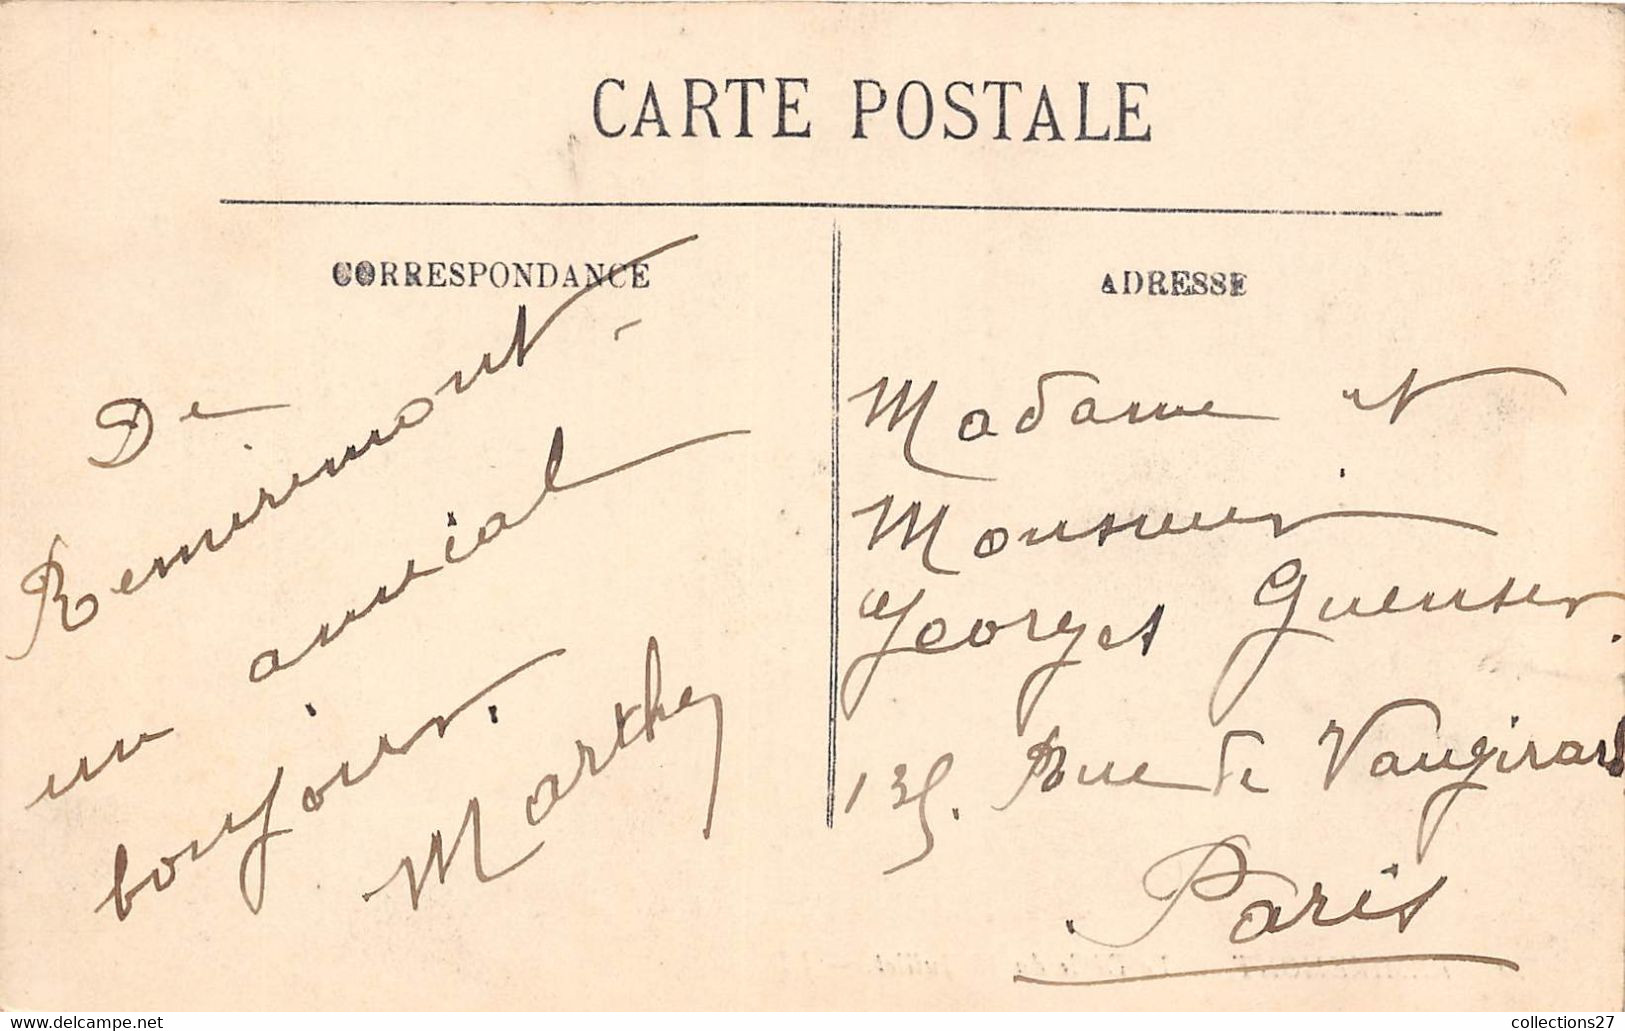 CARTE POSTALE
CORRESPONDANCE
De
Remiremont
un amical
bonjour.
Marthe
ADRESSE
Madame et
Monsieur
Georges Guenser
135. Rue de Vaugirard
Paris
collections27